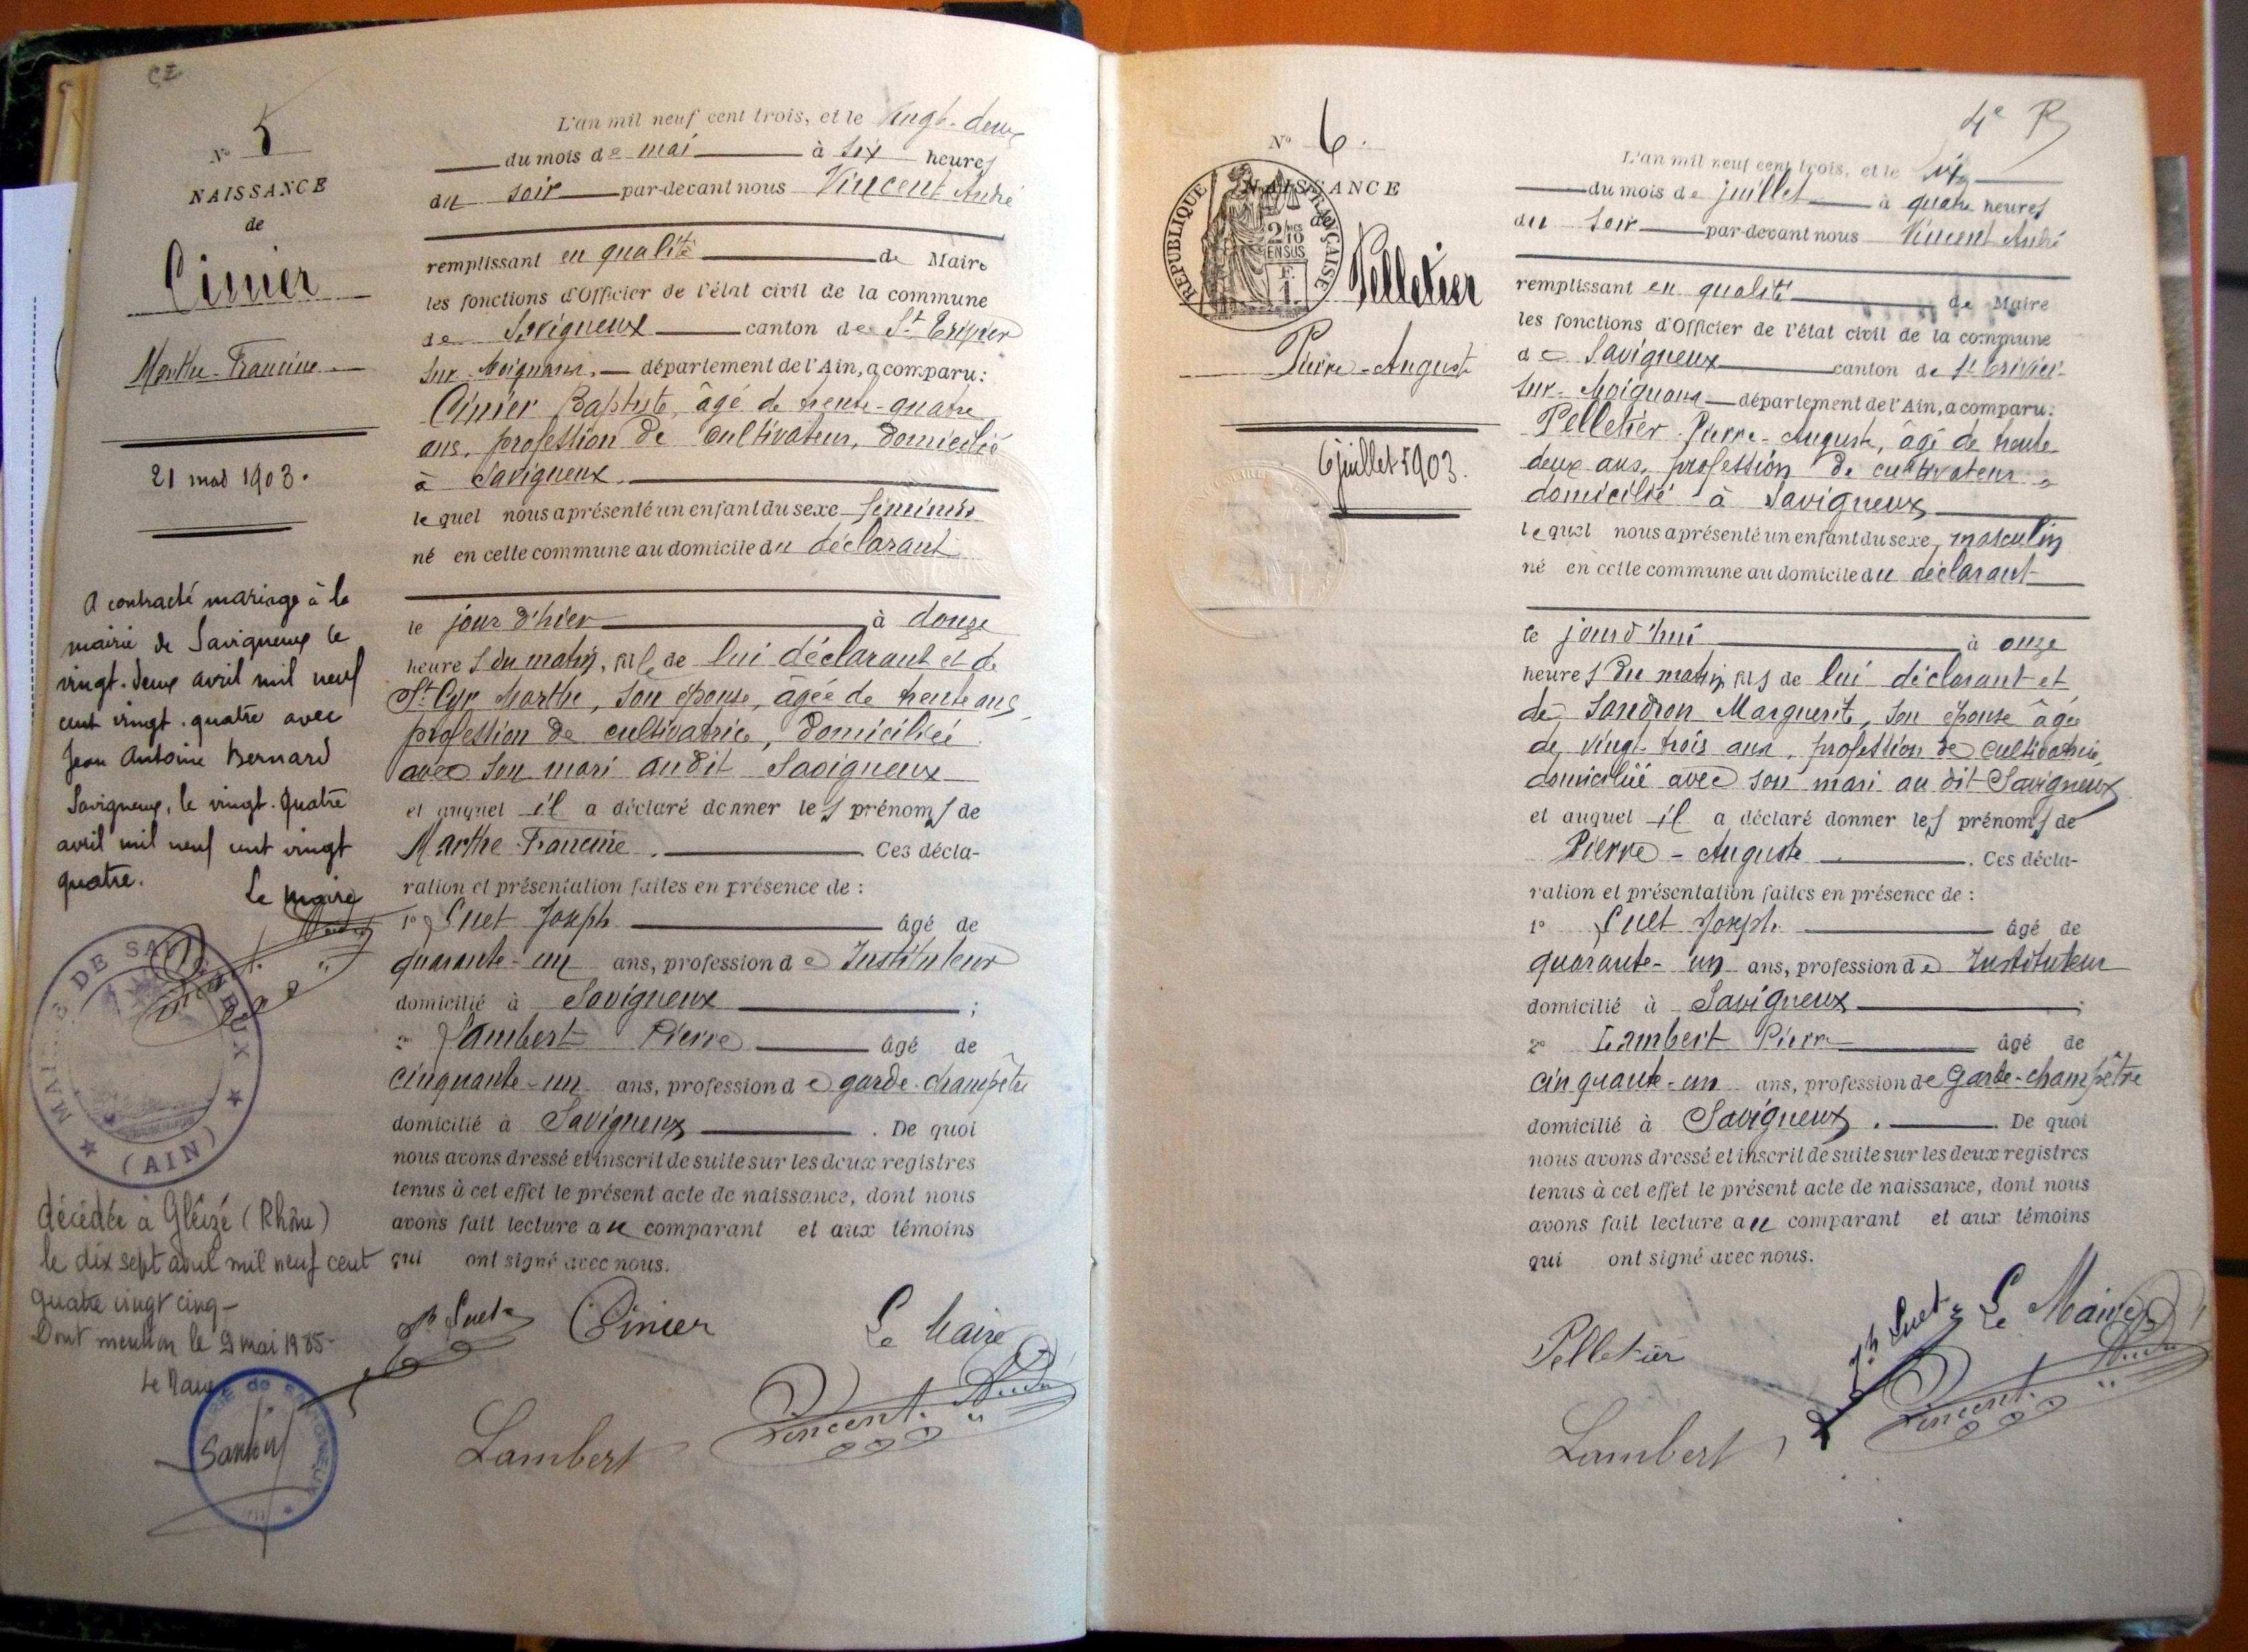 N° 5
NAISSANCE
de
Cinier
Marthe-Francine
21 mai 1903.
A contracté mariage à la
mairie de Savigneux le
vingt-deux avril mil neuf
cent vingt-quatre avec
Jean Antoine Bernard
Savigneux, le vingt-quatre
avril mil neuf cent vingt
quatre.
Le maire
Vincent André
MAIRIE DE SAVIGNEUX
(AIN)
décédée à Gleizé (Rhône)
le dix sept avril mil neuf cent
quatre vingt cinq -
Dont mention le 9 mai 1985-
Le Maire
L'an mil neuf cent trois, et le vingt-deux
du mois de mai à six heures
du soir par-devant nous Vincent André
remplissant en qualité de Maire
les fonctions d'Officier de l'état civil de la commune
de Savigneux canton de St Trivier
sur-Moignans, département de l'Ain, a comparu:
Cinier Baptiste, âgé de trente-quatre
ans, profession de cultivateur, domicilié
à Savigneux.
lequel nous a présenté un enfant du sexe féminin
né en cette commune au domicile du déclarant
le jour d'hier à douze
heures du matin, fille de lui déclarant et de
St Cyr Marthe, son épouse, âgée de trente ans,
profession de cultivatrice, domiciliée
avec son mari audit Savigneux
et auquel il a déclaré donner les prénoms de
Marthe Francine. Ces décla-
ration et présentation faites en présence de :
1° Suet Joseph âgé de
quarante-un ans, profession de Instituteur
domicilié à Savigneux ;
2° Lambert Pierre âgé de
cinquante-un ans, profession de garde-champêtre
domicilié à Savigneux. De quoi
nous avons dressé et inscrit de suite sur les deux registres
tenus à cet effet le présent acte de naissance, dont nous
avons fait lecture au comparant et aux témoins
qui ont signé avec nous.
Jh Suet Cinier Le Maire
Lambert Vincent André
4e R
N° 6.
NAISSANCE
de
RÉPUBLIQUE FRANÇAISE
2/10 EN SUS
F. 1.
Pelletier
Pierre-Auguste
6 juillet 1903.
L'an mil neuf cent trois, et le six
du mois de juillet à quatre heures
du soir par-devant nous Vincent André
remplissant en qualité de Maire
les fonctions d'Officier de l'état civil de la commune
de Savigneux canton de St Trivier-
sur-Moignans département de l'Ain, a comparu:
Pelletier Pierre-Auguste, âgé de trente
deux ans, profession de cultivateur
domicilié à Savigneux
lequel nous a présenté un enfant du sexe masculin
né en cette commune au domicile du déclarant
le jourd'hui à onze
heures du matin fils de lui déclarant et
de Sandron Marguerite, son épouse âgée
de vingt-trois ans, profession de cultivatrice,
domiciliée avec son mari au dit Savigneux
et auquel il a déclaré donner les prénoms de
Pierre-Auguste. Ces décla-
ration et présentation faites en présence de :
1° Suet Joseph âgé de
quarante-un ans, profession de Instituteur
domicilié à Savigneux ;
2° Lambert Pierre âgé de
cinquante-un ans, profession de Garde-champêtre
domicilié à Savigneux. De quoi
nous avons dressé et inscrit de suite sur les deux registres
tenus à cet effet le présent acte de naissance, dont nous
avons fait lecture au comparant et aux témoins
qui ont signé avec nous.
Pelletier Jh Suet Le Maire
Lambert Vincent André